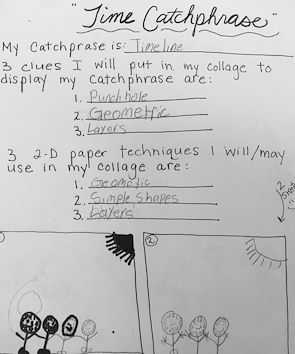 "Time Catchphrase"
My Catchprase is: Timeline
3 clues I will put in my collage to
display my catchphrase are:
1. Punchhole
2. Geometric
3. Layers
3 2-D paper techniques I will/may
use in my collage are:
1. Geomatic
2. Simple Shapes
3. Layers
2
2